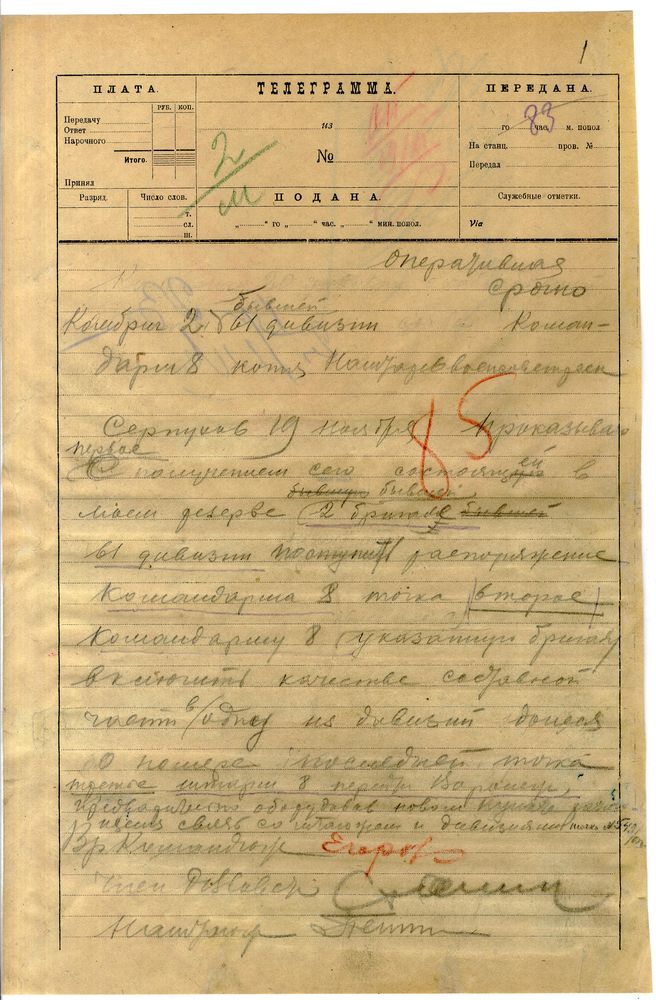 1
ПЛАТА.
ТЕЛЕГРАММА.
ПЕРЕДАНА.
РУБ. КОП.
Передачу
Ответ
Нарочного
Итого.
Принял
из
№
2
83
го час. м. попол
На станц. пров. №
Передал
Разряд.
Число слов.
т.
сл.
ш.
ПОДАНА.
„ “ го „ “ час. „ “ мин. попол.
Служебные отметки.
Via
Оперативная
срочно
бывшей
Комбриг 2 61 дивизии Коман-
дарм 8 копия
85
Серпухов 19 ноября Приказываю
первое
С получением сего состоящей в
бывшей
моем резерве 2 бригаде бывшей
61 дивизии поступить распоряжение
Командарма 8 точка второе
Командарму 8 указанную бригаду
включить качестве составной
части в одну из дивизий донеся
О номере последней точка
третье штарм 8 перейти Воронеж,
предварительно оборудовав новом пункте
связь со и дивизиями точка №
Вр Командюж Егоров
Член Реввоенсов Сталин
Наштаюж Петин